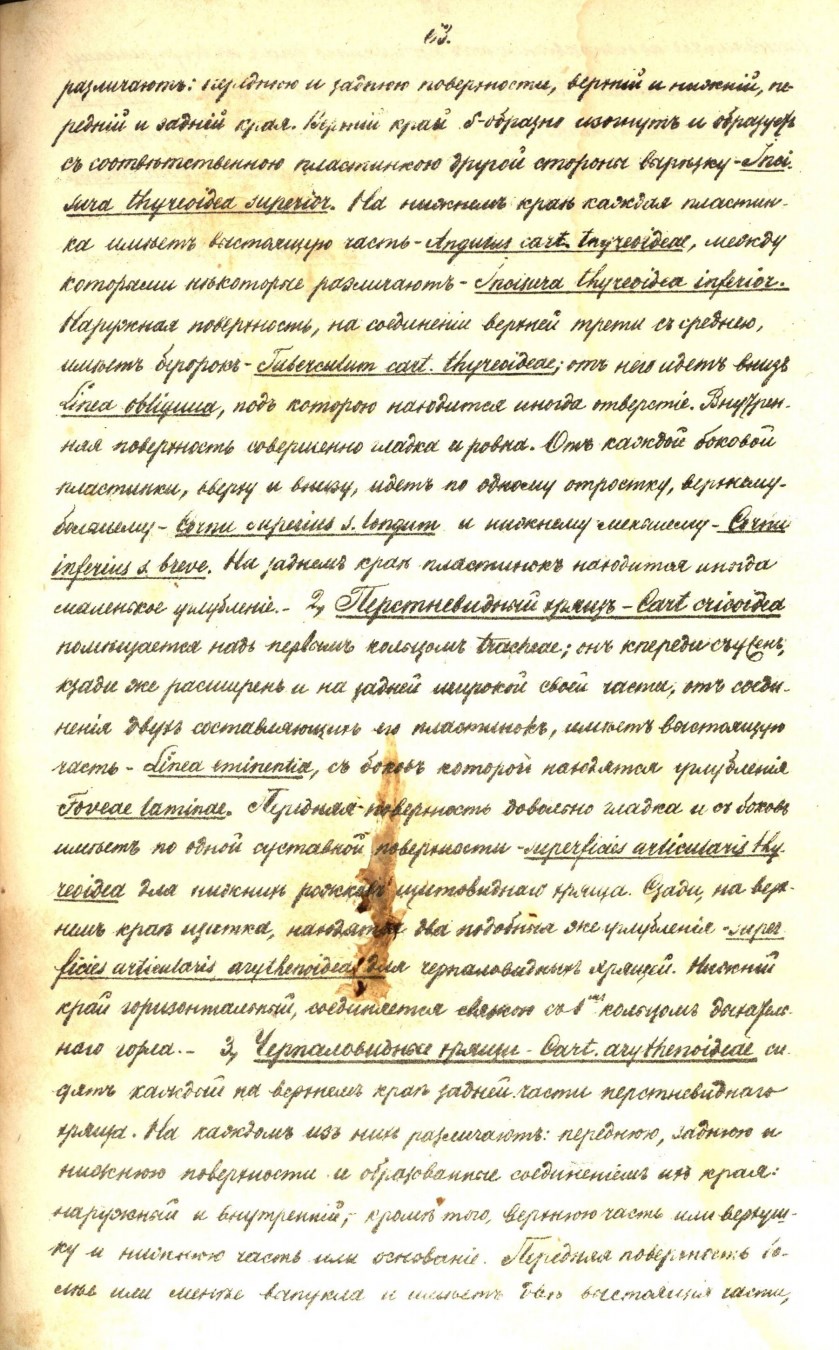 различаютъ: переднюю и заднюю поверхности, верхній и нижній, пе-
редній и задній края. Верхній край S-образно изогнутъ и образуетъ
съ соотвѣтственною пластинкою другой стороны вырѣзку - Inci-
sura thyreoidea superior. На нижнемъ краѣ каждая пластин-
ка имѣетъ выстоящую часть - Angulus cart. thyreoideae, между
которыми нѣкоторые различаютъ - Incisura thyreoidea inferior.
Наружная поверхность, на соединеніи верхней трети съ среднею,
имѣетъ бугорокъ - Tuberculum cart. thyreoideae; отъ него идетъ внизъ
Linea obliqua, подъ которою находится иногда отверстіе. Внутрен-
няя поверхность совершенно гладка и ровна. Отъ каждой боковой
пластинки, вверху и внизу, идетъ по одному отростку, верхнему-
большему - Cornu superius s. longum и нижнему меньшему - Cornu
inferius s. breve. На заднемъ краѣ пластинокъ находится иногда
маленькое углубленіе. - 2, Перстневидный хрящъ - Cart cricoidea
помѣщается надъ первымъ кольцомъ tracheae; онъ кпереди съуженъ,
кзади же расширенъ и на задней широкой своей части, отъ соеди-
ненія двухъ составляющихъ его пластинокъ, имѣетъ выстоящую
часть - Linea eminentia, съ боковъ которой находятся углубленія
Foveae laminae. Передняя поверхность довольно гладка и съ боковъ
имѣетъ по одной суставной поверхности - superficies articularis thy-
reoidea для нижнихъ рожковъ щитовиднаго хряща. Сзади, на верх-
немъ краѣ щитка, находятся два подобныя же углубленія - super-
ficies articularis arythenoideae для черпаловидныхъ хрящей. Нижній
край горизонтальный, соединяется связкою съ 1ымъ кольцомъ дыхатель-
наго горла. - 3, Черпаловидные хрящи - Cart. arythenoideae си-
дятъ каждый на верхнемъ краѣ задней части перстневиднаго
хряща. На каждомъ изъ нихъ различаютъ: переднюю, заднюю и
нижнюю поверхности и образованные соединеніемъ ихъ края:
наружный и внутренній; кромѣ того, верхнюю часть или верхуш-
ку и нижнюю часть или основаніе. Передняя поверхность бо-
лѣе или менѣе выпукла и имѣетъ двѣ выстоящія части,